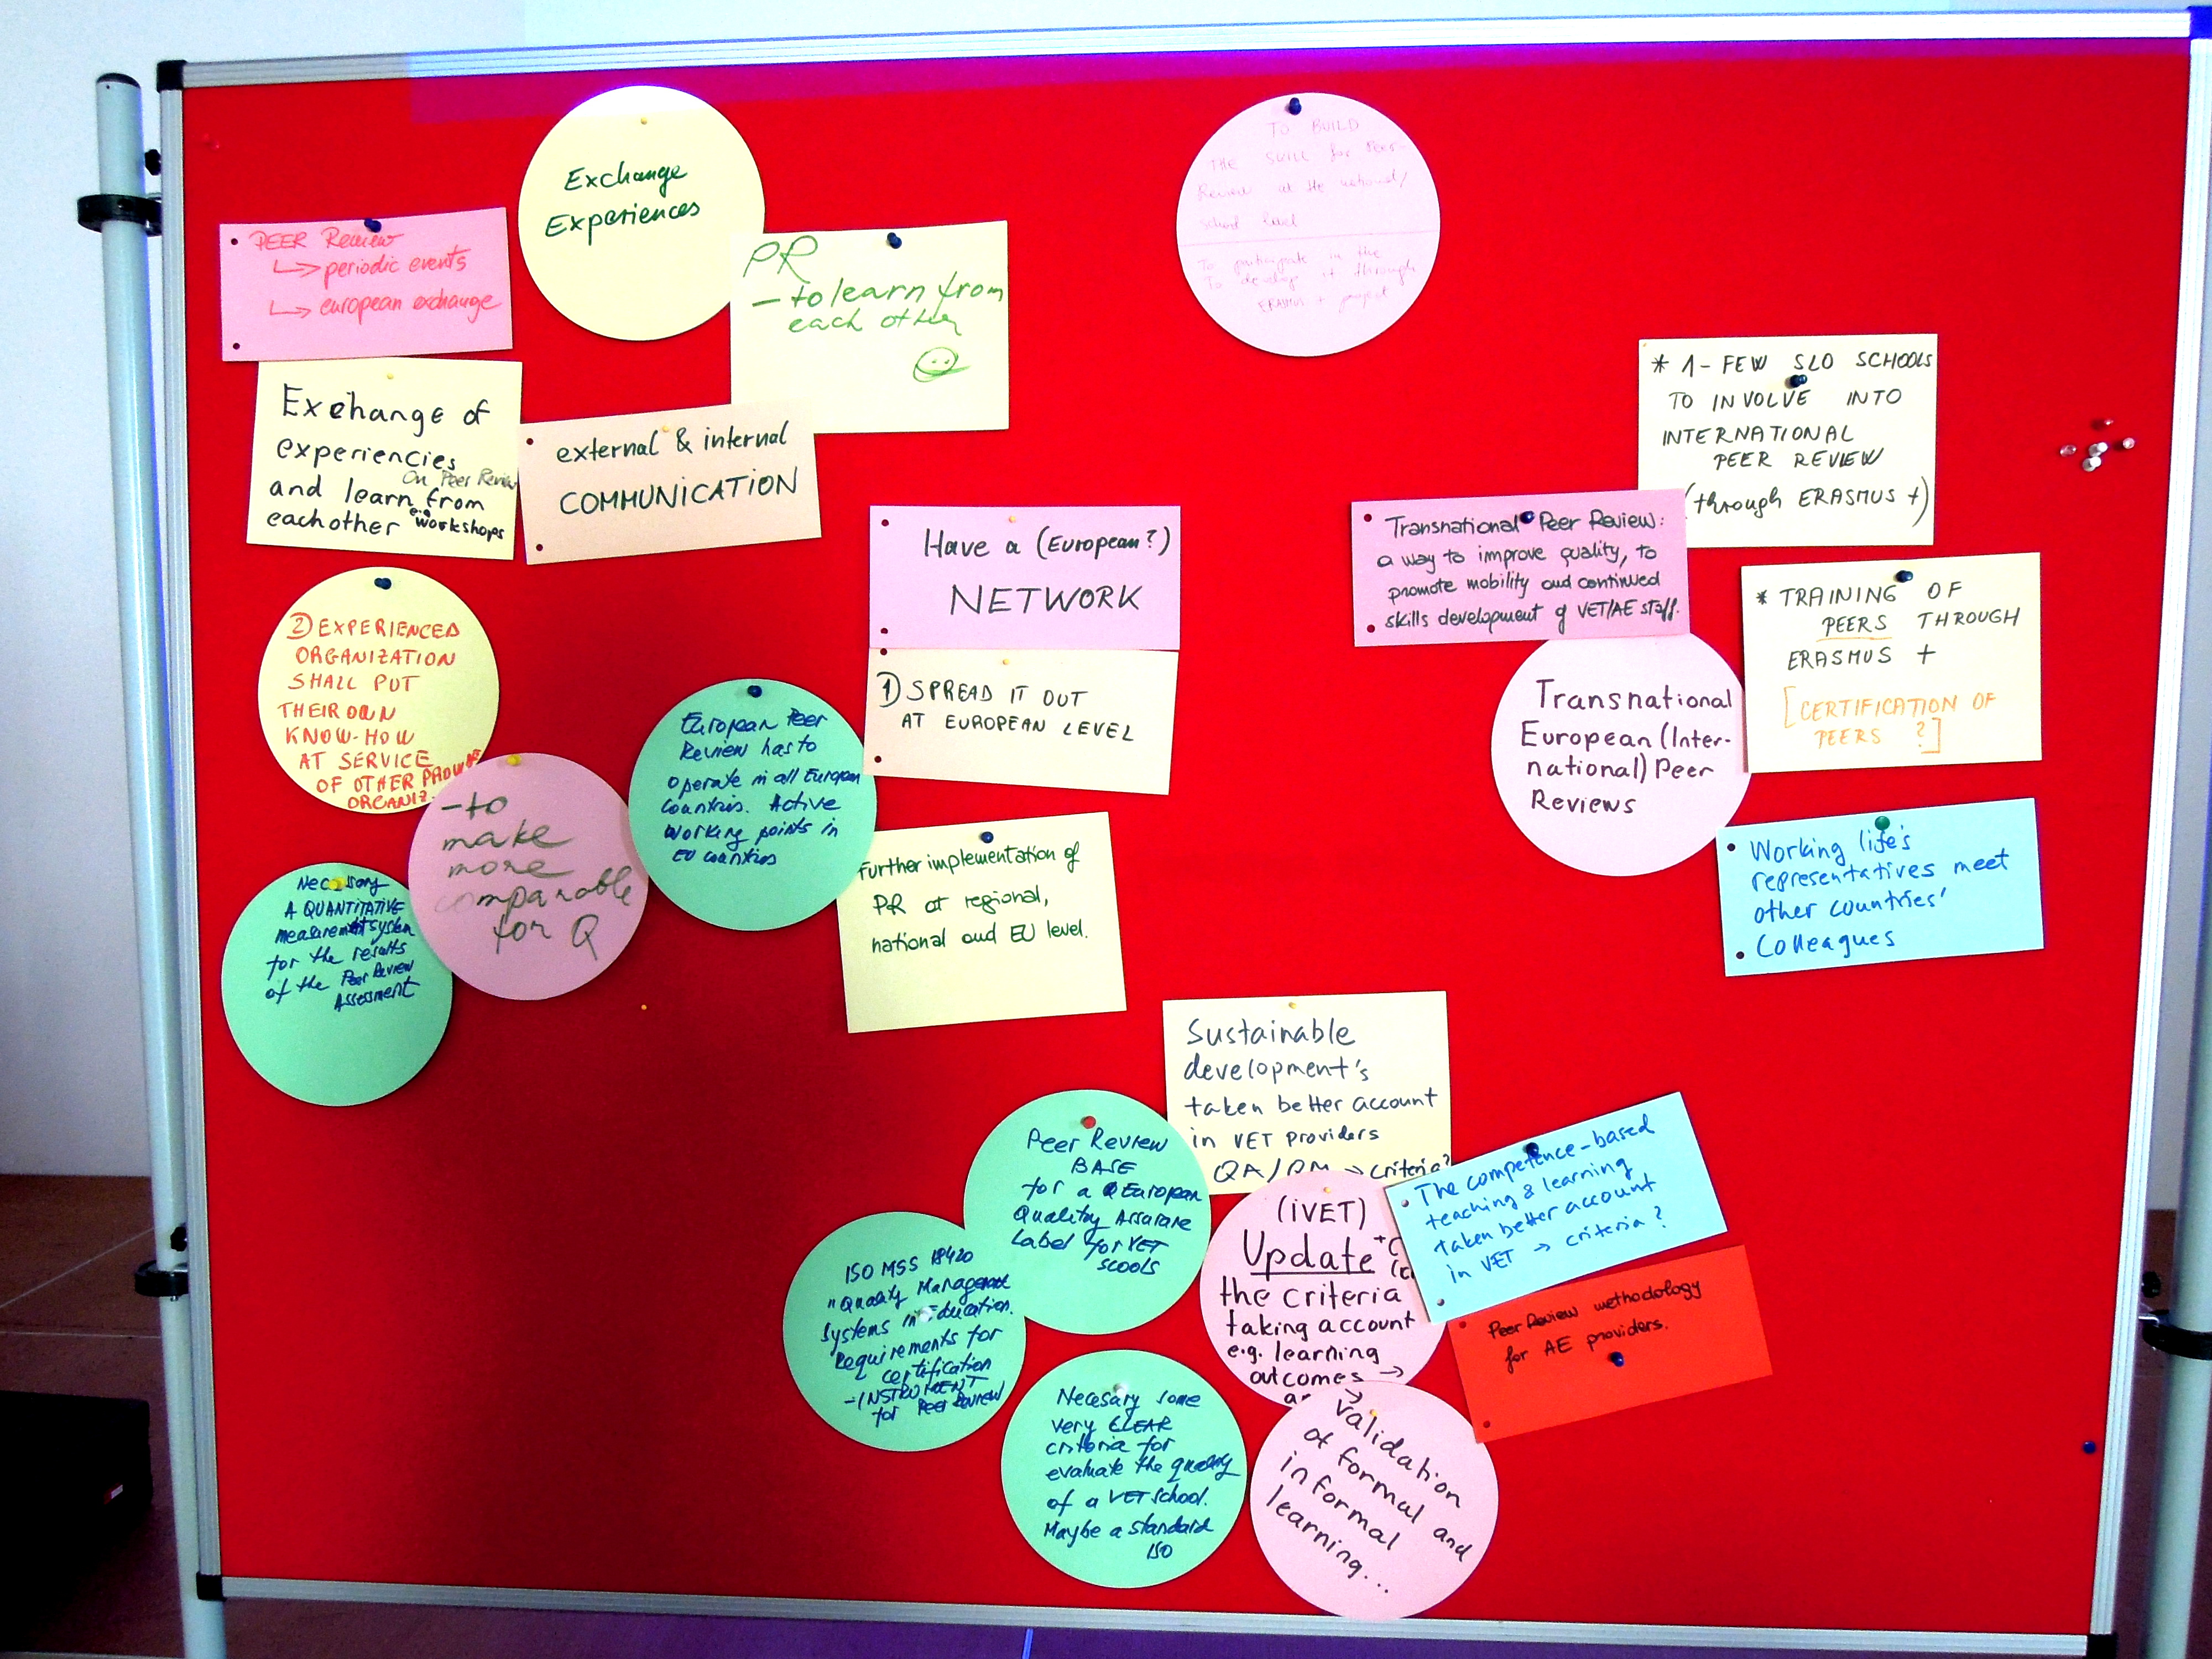 Exchange
Experiences
TO BUILD
THE SKILL for Peer-
Review at the national/
school level
To participate in the
To develop it through
ERASMUS + project
PEER Review
↳ periodic events
↳ european exchange
PR
- to learn from
each other
Exchange of
experiencies
On Peer Review
and learn from
eachother e.g. workshops
external & internal
COMMUNICATION
* 1- FEW SLO SCHOOLS
TO INVOLVE INTO
INTERNATIONAL
PEER REVIEW
(through ERASMUS +)
Have a (European?)
NETWORK
Transnational Peer Review:
a way to improve quality, to
promote mobility and continued
skills development of VET/AE staff.
* TRAINING OF
PEERS THROUGH
ERASMUS +
[CERTIFICATION OF
PEERS ?]
② EXPERIENCED
ORGANIZATION
SHALL PUT
THEIR OWN
KNOW-HOW
AT SERVICE
OF OTHER
ORGANIZ.
① SPREAD IT OUT
AT EUROPEAN LEVEL
European Peer
Review has to
operate in all European
countris. Active
working points in
EU countries
Transnational
European (Inter-
national) Peer
Reviews
- to
make
more
comparable
for Q
Further implementation of
PR at regional,
national and EU level.
Working life's
representatives meet
other countries'
Colleagues
Necesary
A QUANTITATIVE
measurement system
for the results
of the Peer Review
Assesment
Sustainable
development's
taken better account
in VET providers
QA/ → criteria?
Peer Review
BASE
for a European
Quality Assurane
Label for VET
scools
The competence-based
teaching & learning
taken better account
in VET → criteria?
(iVET)
Update +
the criteria
taking account
e.g. learning
outcomes →
ISO MSS 18420
"Quality Management
Systems in Education.
Requirements for
certification
-INSTRUMENT
for Peer Review
Peer Review methodology
for AE providers.
Necesary some
very CLEAR
criteria for
evaluate the quality
of a VET school.
Maybe a standard
ISO
→ validation
of formal and
informal
learning...